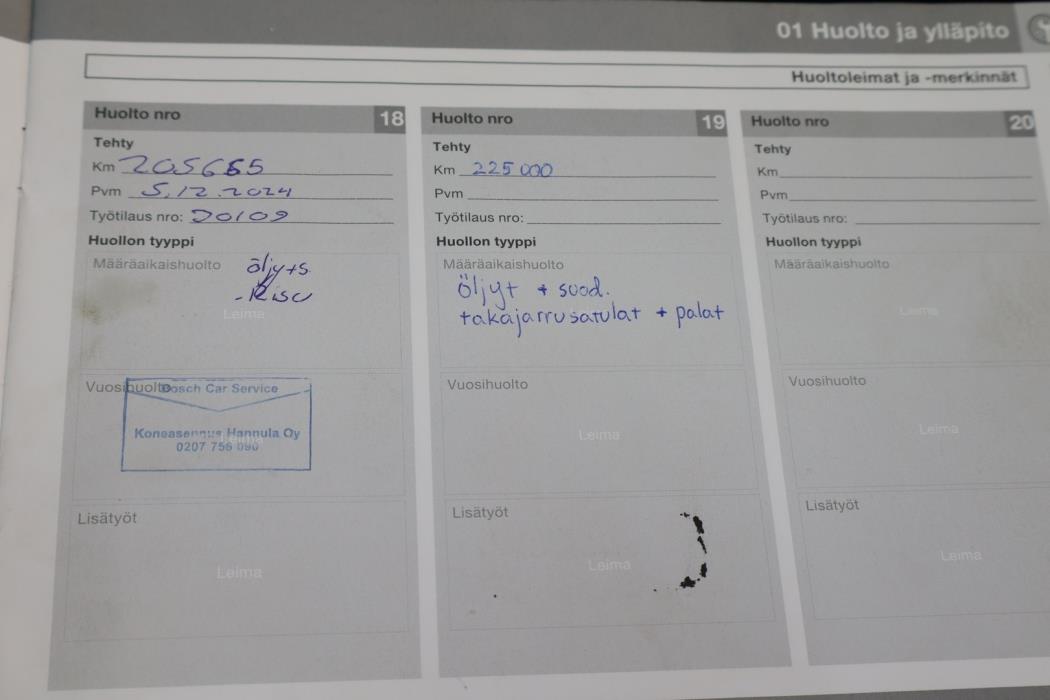 01 Huolto ja ylläpito
Huoltoleimat ja -merkinnät
Huolto nro 18
Tehty
Km 205665
Pvm 5.12.2024
Työtilaus nro: D0109
Huollon tyyppi
Määräaikaishuolto
öljy+s.
Leima
Vuosihuolto
Bosch Car Service
Koneasennus Hannula Oy
0207 756 090
Lisätyöt
Leima
Huolto nro 19
Tehty
Km 225 000
Pvm
Työtilaus nro:
Huollon tyyppi
Määräaikaishuolto
öljyt + suod.
takajarrusatulat + palat
Vuosihuolto
Leima
Lisätyöt
Leima
Huolto nro 20
Tehty
Km
Pvm
Työtilaus nro:
Huollon tyyppi
Määräaikaishuolto
Leima
Vuosihuolto
Leima
Lisätyöt
Leima